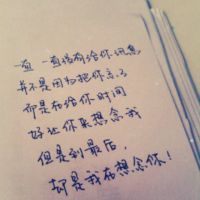 一直一直没有给你讯息
并不是因为把你忘了
却是在给你时间
好让你来想念我
但是到最后，
却是我在想念你！